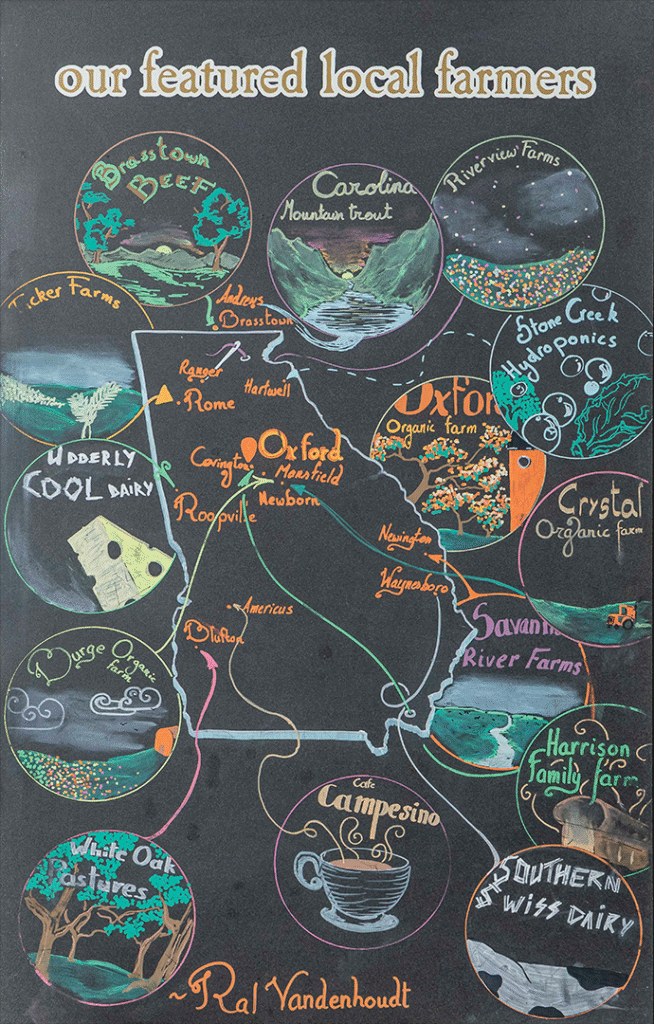 our featured local farmers
Brasstown
BEEF
Carolina
Mountain trout
Riverview Farms
Stone Creek
Hydroponics
Ticker Farms
Andrews
Brasstown
Ranger
Rome
Hartwell
Oxford
Organic farm
Oxford
Mansfield
Covington
Newborn
Roopville
UDDERLY
COOL DAIRY
Crystal
Organic farm
Newington
Waynesboro
Americus
Blufton
Savann
River Farms
Burge Organic
farm
Harrison
Family farm
Cafe
Campesino
White Oak
Pastures
SOUTHERN
SWISS DAIRY
~Ral Vandenhoudt